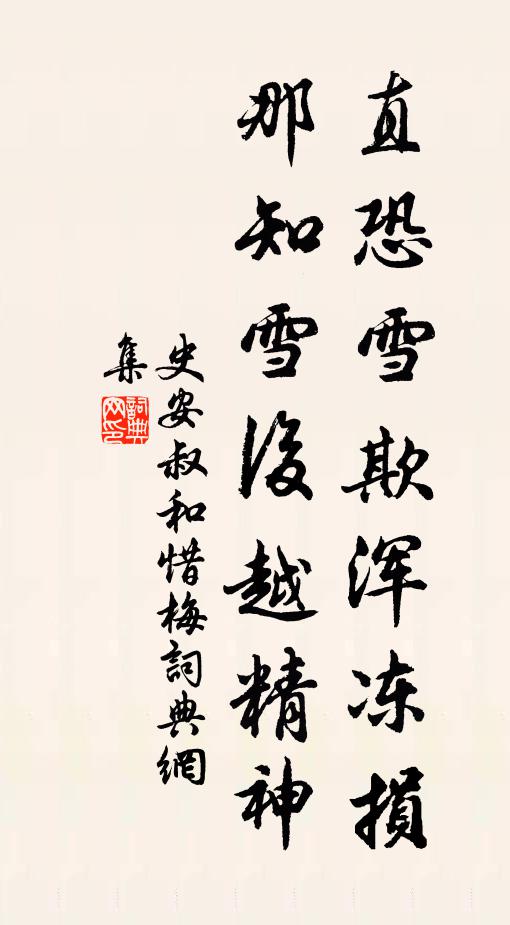 直恐雪欺浑冻損
那知雪後越精神
史安叔和惜梅詞典網
集
詞典
网印